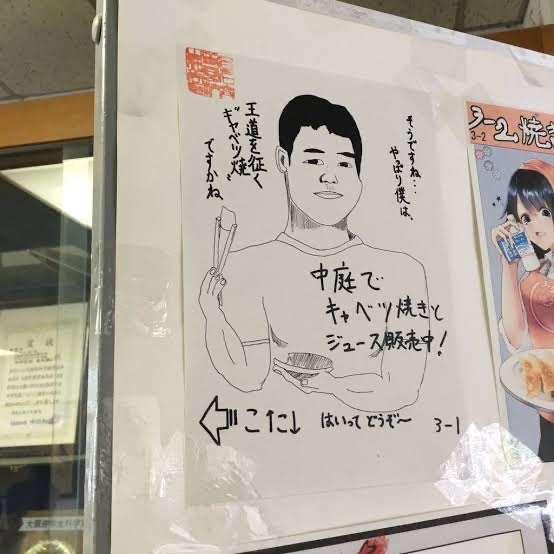 そうですね…
やっぱり僕は、
王道を征く
“キャベツ焼”
ですかね、
中庭で
キャベツ焼きと
ジュース販売中!
⇦こた↓ はいってどうぞ〜 3-1
3-2焼き
3-2
賞状